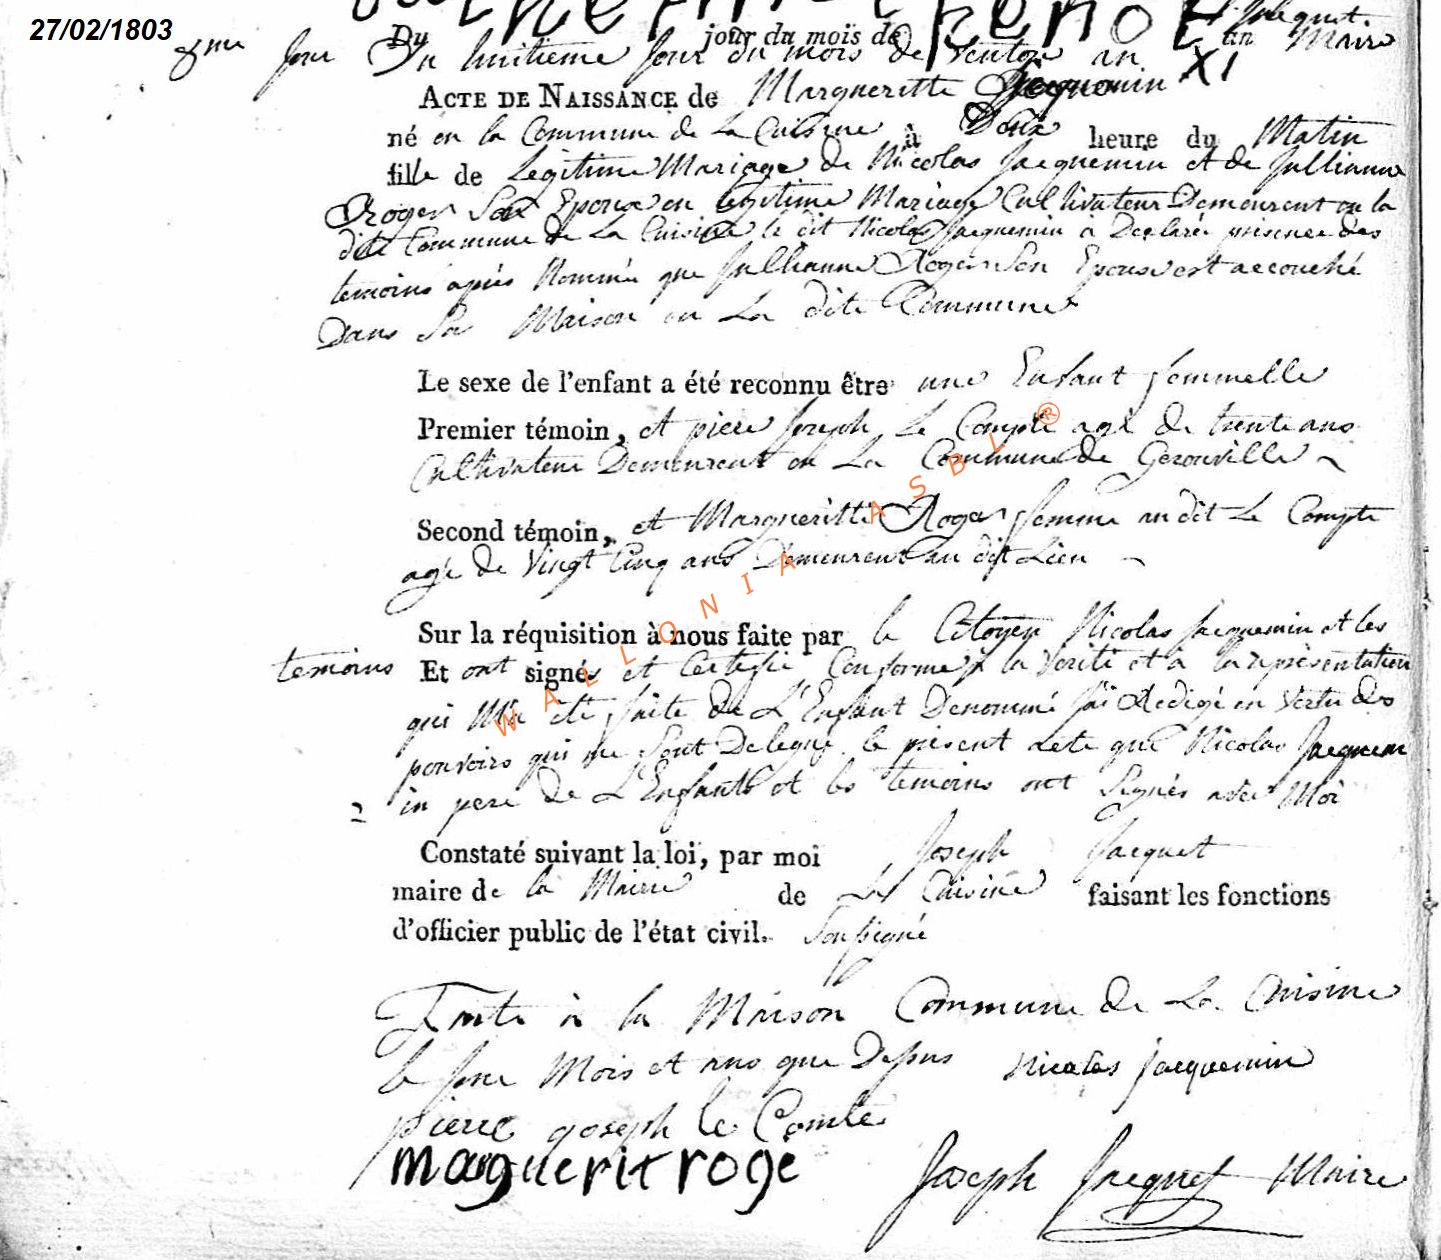 27/02/1803
Jacquet
8me jour Du jour du mois de an Maire
Du huitieme jour du mois de Ventose an XI
ACTE DE NAISSANCE de Margueritte Jacquemin
né en la Commune de La Cuisine à Deux heure du Matin
fille de Legitime Mariage de Nicolas Jacquemin et de Jullienne
Roger Son Epouse en legitime Mariage Cultivateur Demeurent en la
dite Commune de La Cuisine le dit Nicolas Jacquemin à Declarée presence des
temoins après Nommée que Jullienne Roger Son Epouse est accouché
Dans Sa Maison en La dite Commune
Le sexe de l'enfant a été reconnu être une Enfant femmelle
Premier témoin, et piere Joseph Le Compte agé de trente ans
Cultivateur Demeurent en La Commune de Gerouville
Second témoin, et Margueritte Roger femme au dit Le Compte
agée de Vingt Cinq ans Demeurent au dit Lieu
Sur la réquisition à nous faite par le Citoyen Nicolas Jacquemin et les
temoins Et ont signés et Certefie Conforme à la Verité et à la représentation
qui M'a été faite de L'Enfant Denommé J'ai Redigé en Vertu des
pouvoirs qui me Sont Delegué le présent acte que Nicolas Jacquem
in pere de L'Enfants et les temoins ont Signés avec Moi
Constaté suivant la loi, par moi Joseph Jacquet
maire de la Mairie de La Cuisine faisant les fonctions
d'officier public de l'état civil. Soussigné
Faite à la Maison Commune de La Cuisine
le jour Mois et ans que Dessus Nicolas Jacquemin
pierre joseph le Comte
marguerit roge Joseph Jacquet Maire
WALLONIA ASBL ®